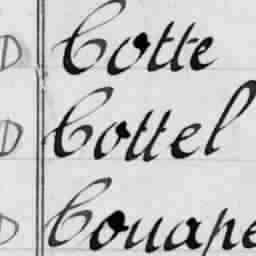 D Cotte
D Cottel
D Couape